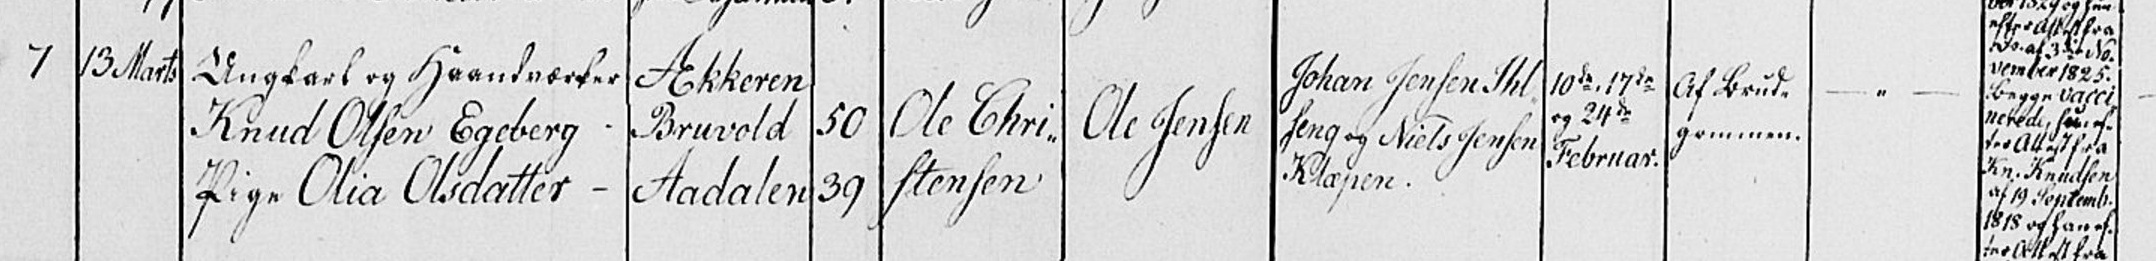 7
13 Marts
Ungkarl og Haandværker
Knud Olsen Egeberg -
Pige Olia Olsdatter -
Ækkeren
Bruvold
Aadalen
50
39
Ole Chri-
stensen
Ole Jensen
Johan Jensen Ihl
seng og Niels Jensen
Klæpen.
10de, 17de
og 24de
Februar.
Af Brud-
gommen.
— " —
efter Attest fra
af 3die No-
vember 1825.
Begge vacci-
nerede, hun ef-
ter Attest fra
Kn. Knudsen
af 19 Septemb.
1818 og han ef-
ter Attest fra